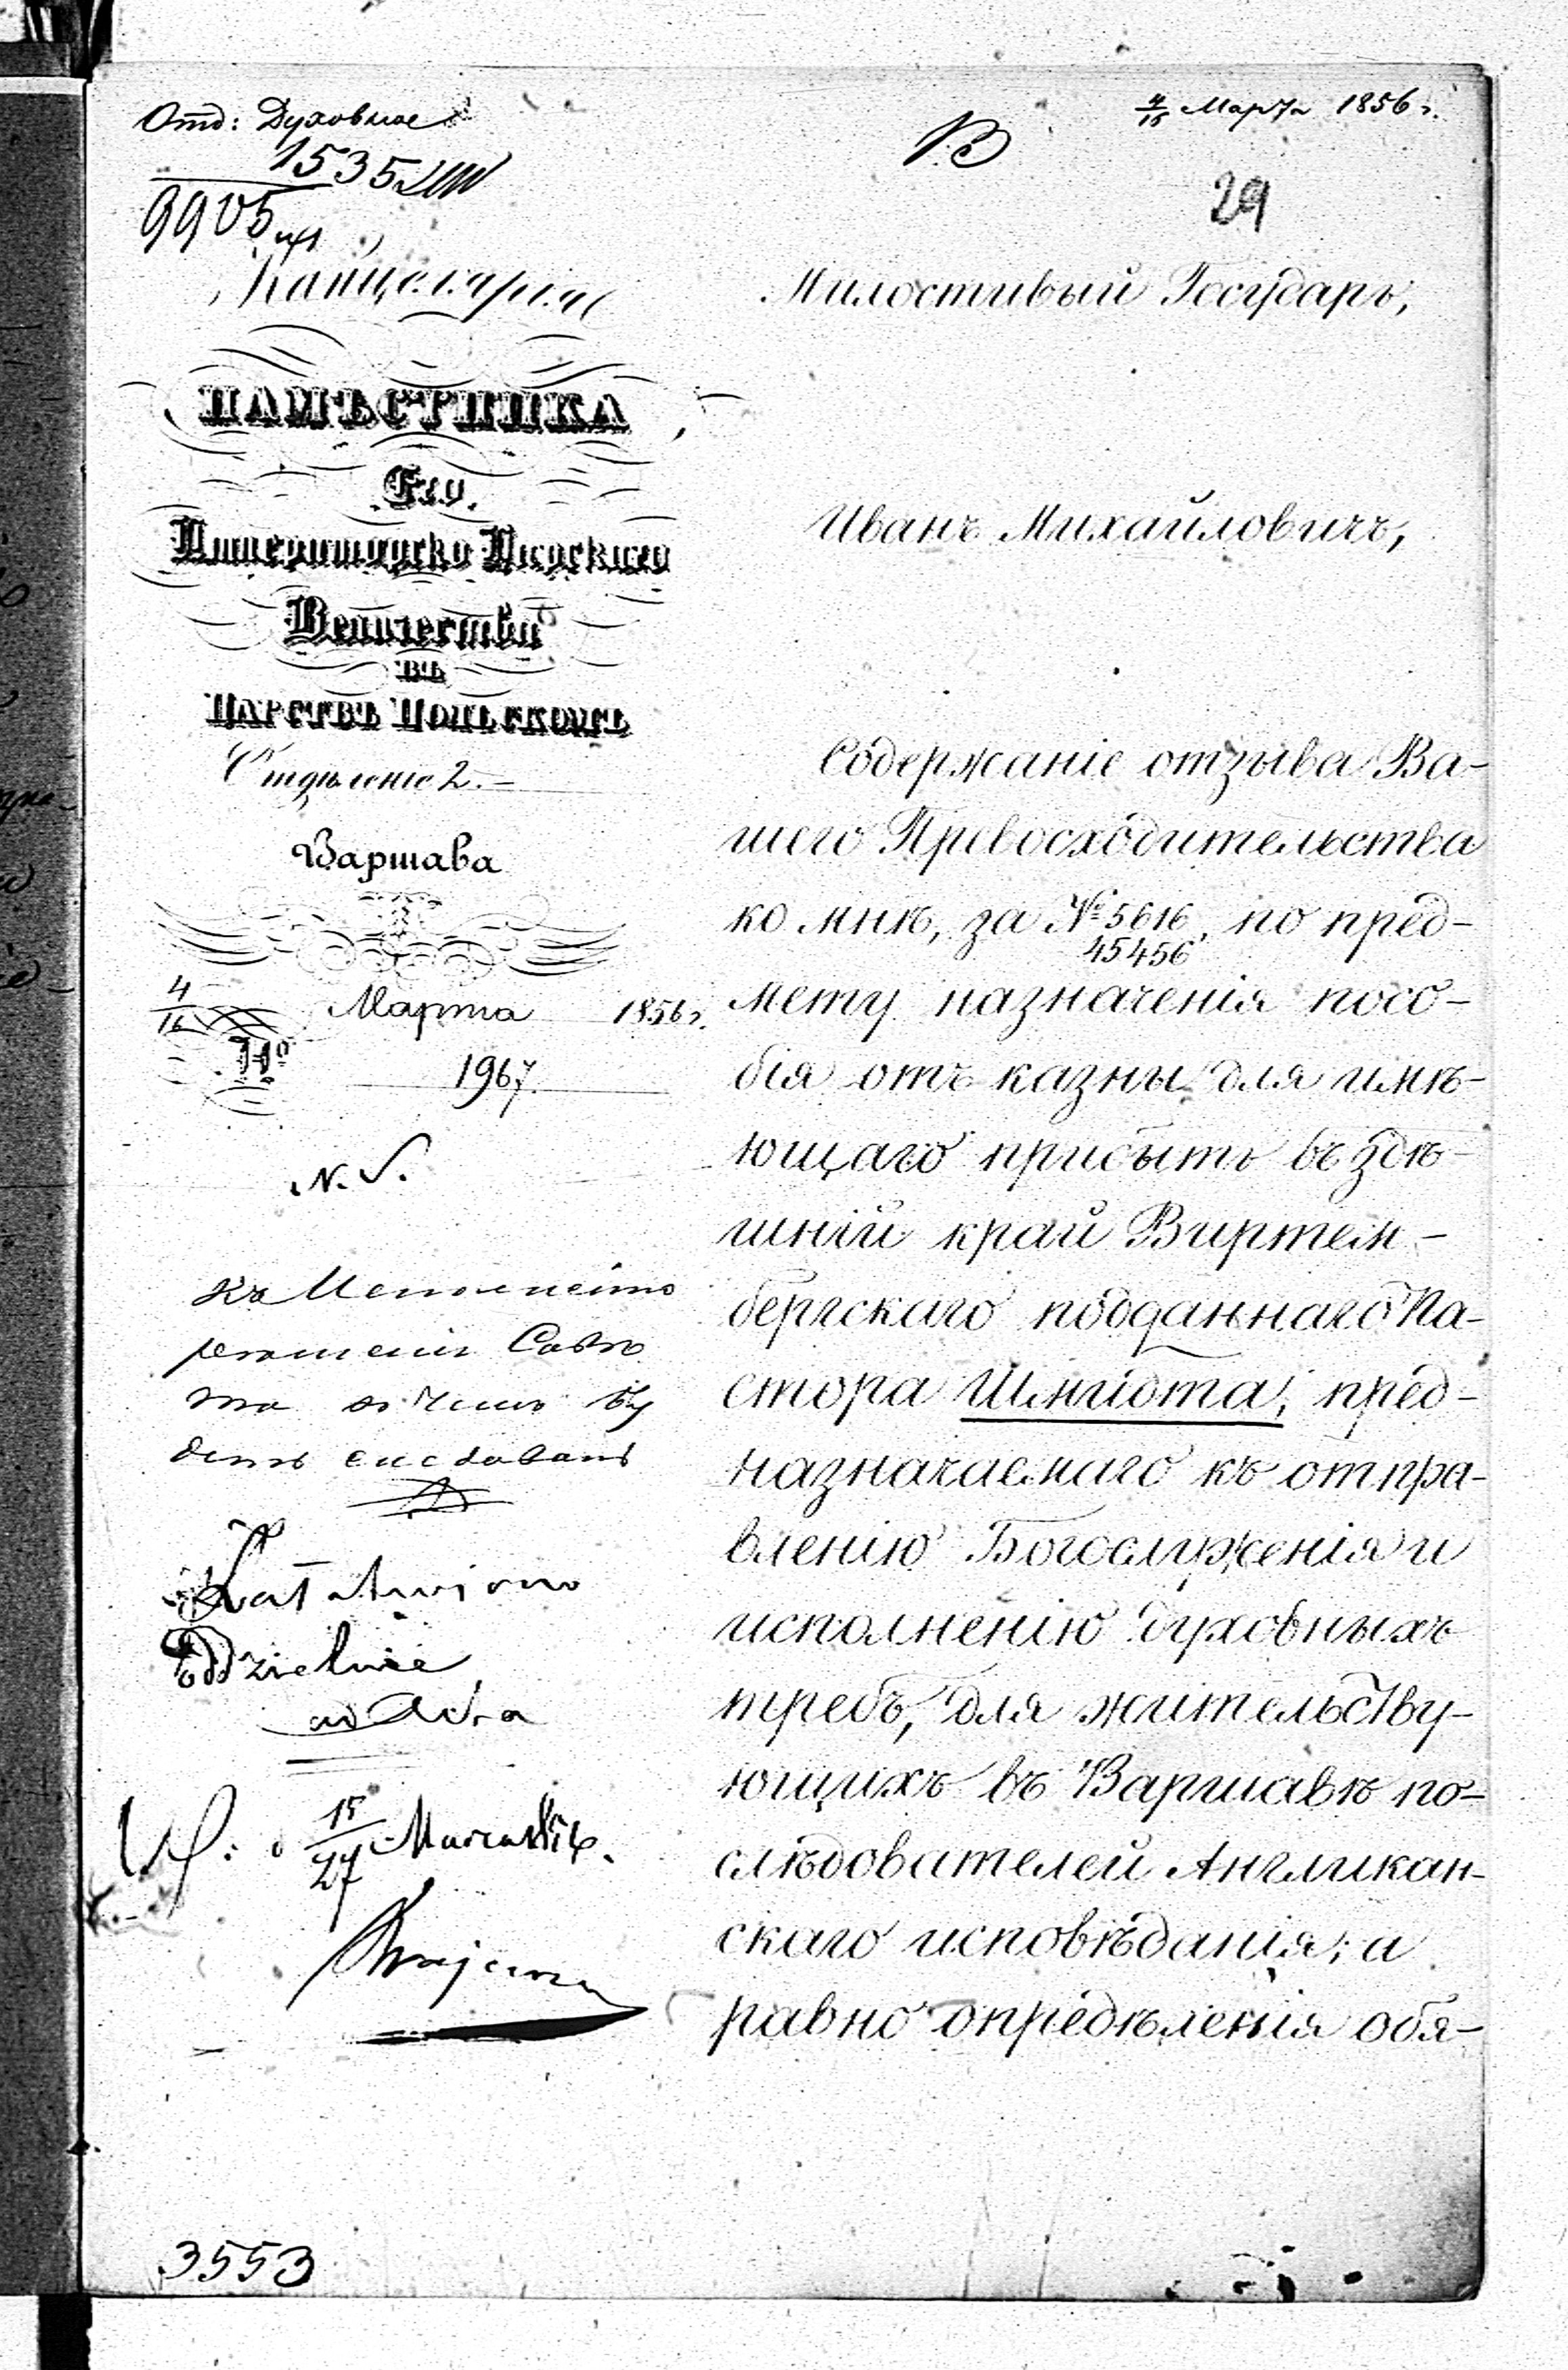 Отд: Духовное
4/16 Марта 1856 г.
1535
9905
29
Канцелярія
НАМѢСТНИКА
Его
Императорско Царскаго
Величества
въ
ЦАРСТВѢ ПОЛЬСКОМЪ
Отдѣленіе 2.
Варшава
4/16 Марта 1856 г.
№ 1967.
N. S.
Къ
решенію Совѣ
та о чемъ бу
детъ
Załatwiono
Oddzielnie
ad Acta
d 15/27 Marca 1856.
3553
Милостивый Государь,
Иванъ Михайловичъ,
Содержаніе отзыва Ва-
шего Превосходительства
ко мнѣ, за № 5616/45456, по пред-
мету назначенія посо-
бія отъ казны для имѣ-
ющаго прибыть въ здѣ-
шній край Виртем-
бергскаго подданнаго Па-
стора Шмидта, пред-
назначаемаго къ отпра-
вленію Богослуженія и
исполненію духовныхъ
требъ, для жительству-
ющихъ въ Варшавѣ по-
слѣдователей Англикан-
скаго исповѣданія; а
равно опредѣленія обя-